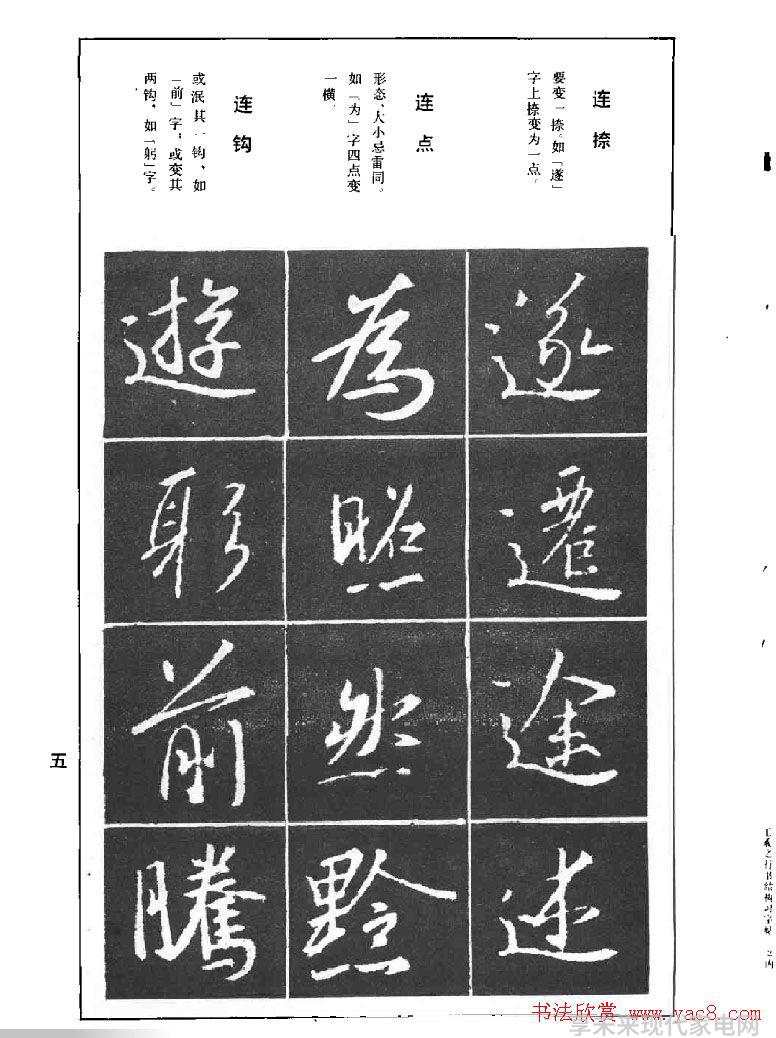 连捺
要变一捺。如「遂」
字上捺变为一点。
连点
形态、大小忌雷同。
如「为」字四点变
一横。
连钩
或泯其一钩、如
「前」字；或变其
两钩，如「躬」字。
遂
遷
途
述
為
照
然
黔
遊
躬
前
騰
五
王羲之行书结构习字帖
书法欣赏 www.yac8.com
享未来现代家电网